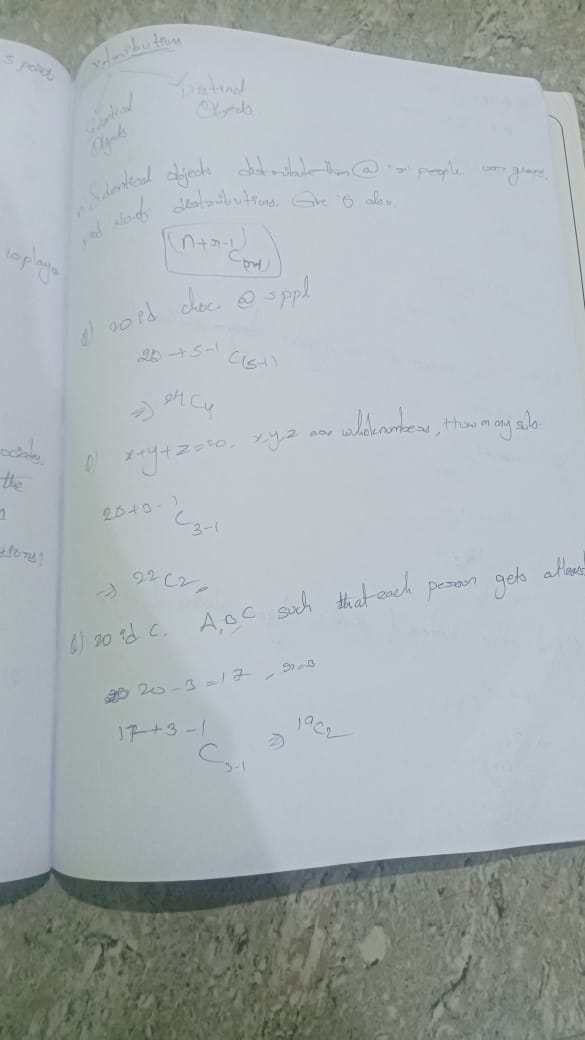 s point
Distribution
Identical
Objects
Distinct
Objects
n Identical objects distribute them @ "r" people or groups,
and No. of distributions. One is also.
n+r-1 C (r-1)
Q) 20 id choc @ 5 ppl
20 + 5-1 C(5-1)
⇒ 24 C4
Q) x+y+z=20. x,y,z are whole numbers, How many sols.
20+3-1 C 3-1
⇒ 22 C2
Q) 20 id C. A,B,C such that each person gets atleast
20-3 = 17, r=3
17+3-1 C 3-1 ⇒ 19C2
the